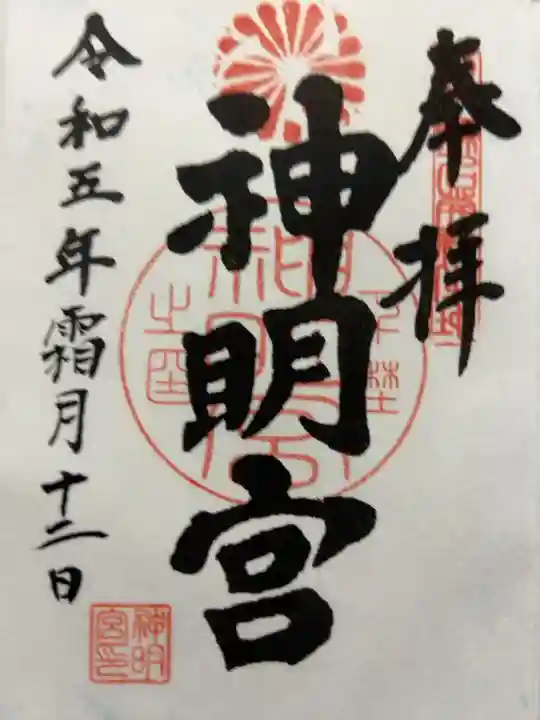 奉拝
神明宮
令和五年霜月十二日
神明
宮印